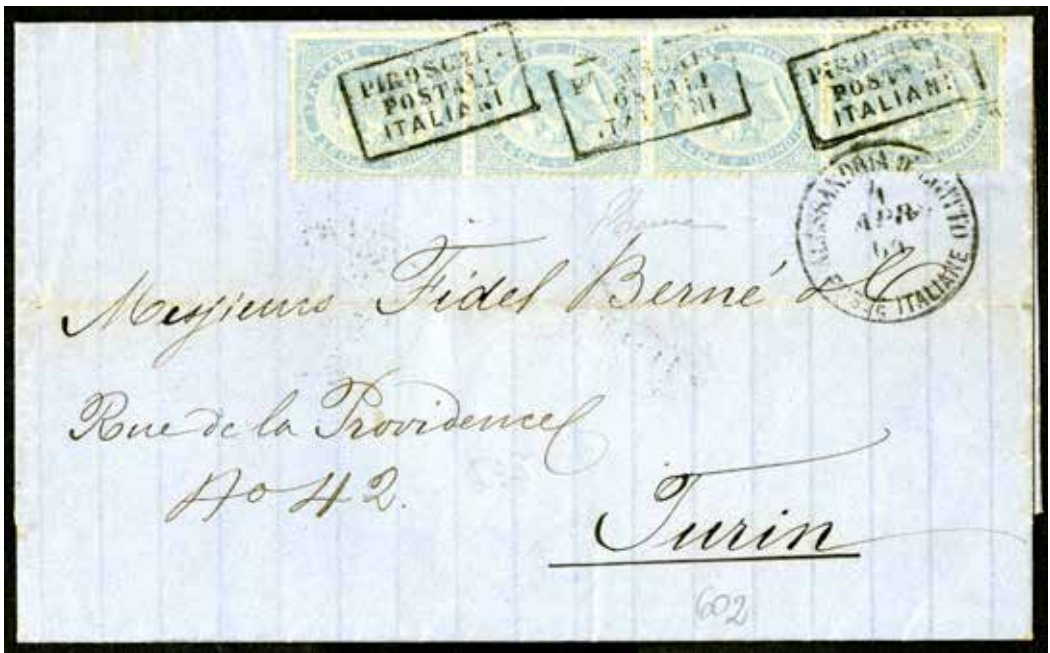 PIROSCAFI
POSTALI
ITALIANI
POSTALI
ITALIANI
PIROSCAFI
POSTALI
ITALIANI
ALESSANDRIA D'EGITTO
APR
POSTE ITALIANE
Messieurs Fidel Berné & C
Rue de la Providence
No 42.
Turin
602